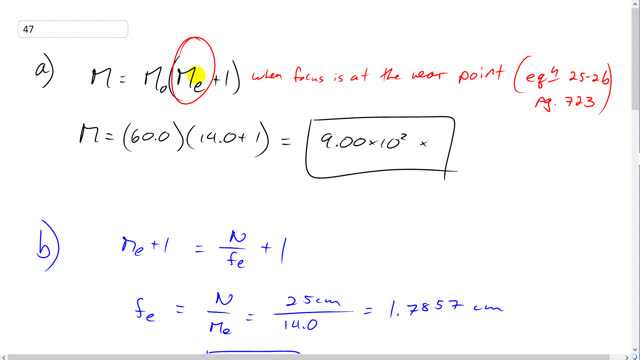 47
a) M = Mo (Me + 1) when focus is at the near point (eqn 25-2b
pg. 723)
M = (60.0)(14.0 + 1) = 9.00 × 10² ×
b) Me + 1 = N/fe + 1
fe = N/Me = 25cm/14.0 = 1.7857 cm